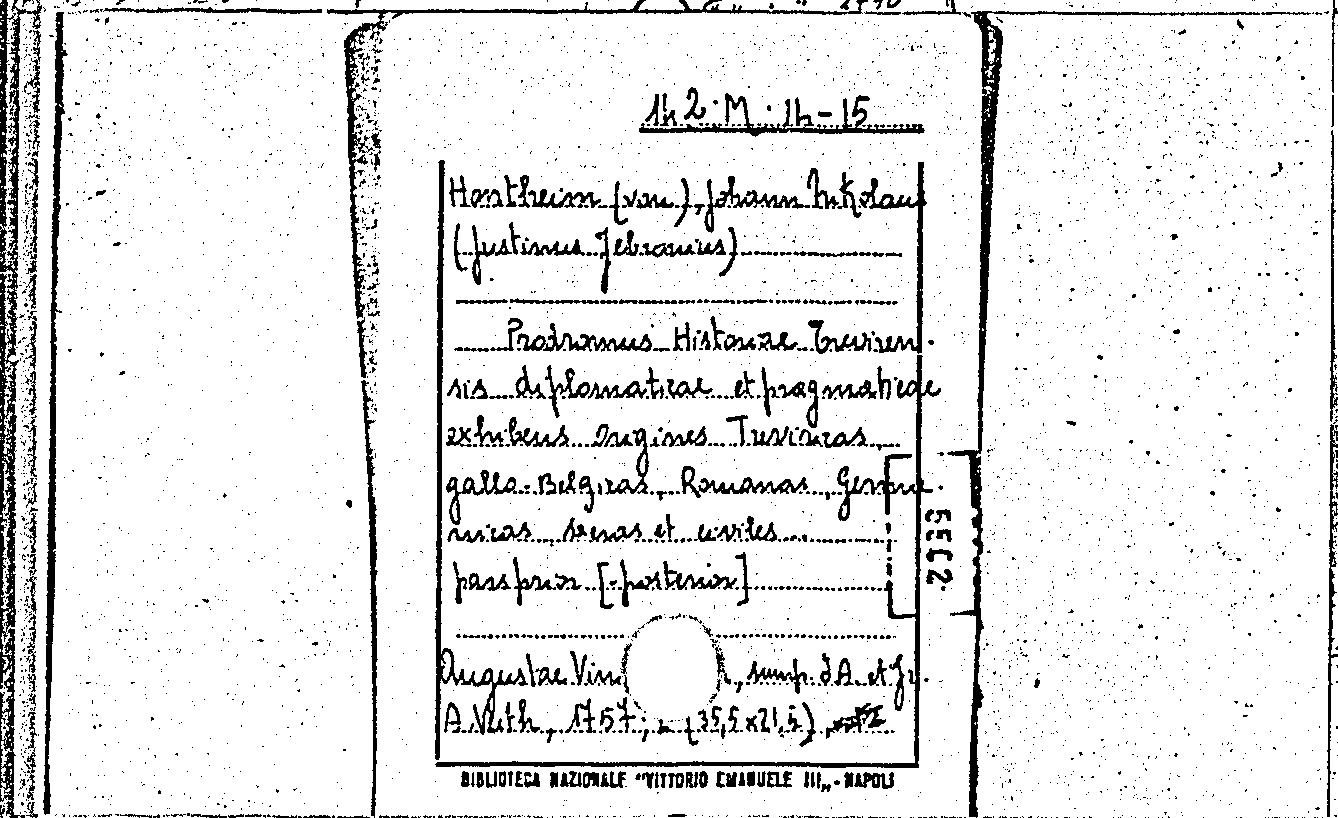 142. M. 14-15
Hontheim (von), Johann Nikolaus
(Justinus Febronius)
Prodromus Historiae Treviren-
sis diplomaticae et pragmaticae
exhibens origines Trevircas,
gallo-Belgicas, Romanas, Germa-
nicas, sacras et civiles...
pars prior [-posterior]
Augustae Vin , sump. d A. et Fr.
A. Veith, 1757, (35,5x21,5),
BIBLIOTECA NAZIONALE "VITTORIO EMANUELE III„ - NAPOLI